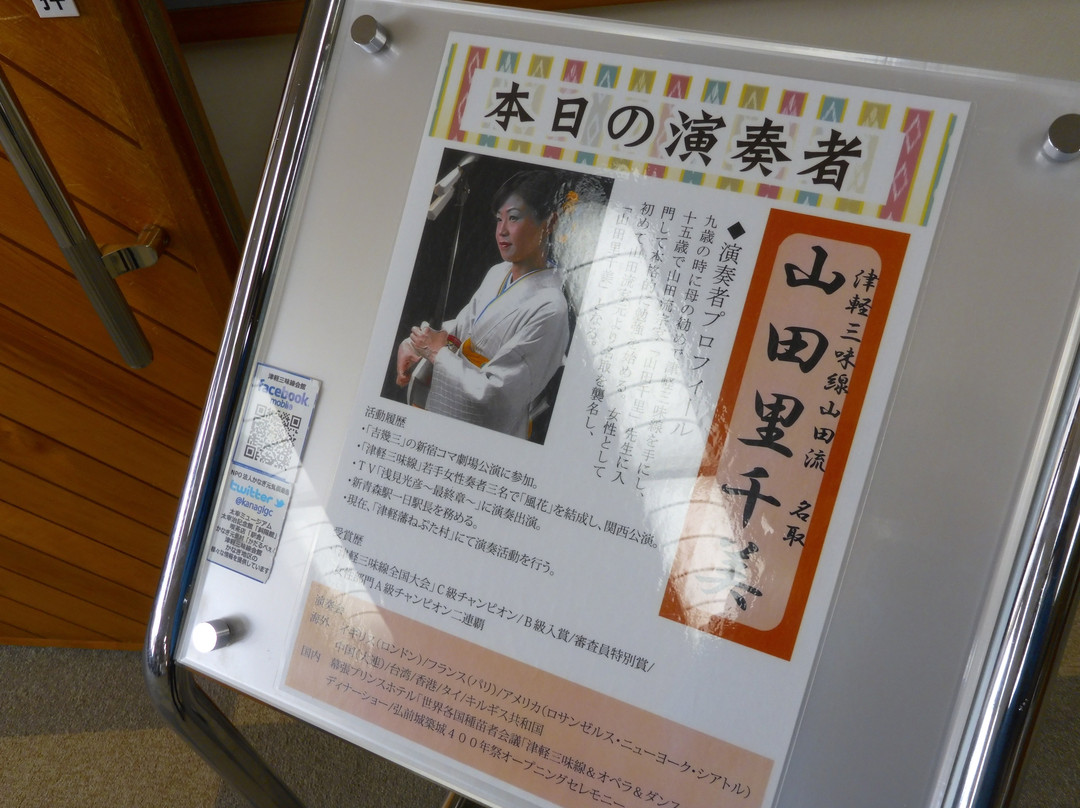 本日の演奏者
津軽三味線山田流 名取
山田里千美
◆演奏者プロフィール
九歳の時に母の勧めで津軽三味線を手にし、
十五歳で山田
門して本格的
先生に入
初めて
女性として
を襲名し、
活動履歴
・「吉幾三」の新宿コマ劇場公演に参加。
・「津軽三味線」若手女性奏者三名で「風花」を結成し、関西公演。
・TV「浅見光彦~最終章~」に演奏出演。
・新青森駅一日駅長を務める。
・現在、「津軽藩ねぷた村」にて演奏活動を行う。
受賞歴
津軽三味線全国大会」C級チャンピオン/B級入賞/審査員特別賞/
性部門A級チャンピオン二連覇
演奏
海外 イギリス(ロンドン)/フランス(パリ)/アメリカ(ロサンゼルス・ニューヨーク・シアトル)
中国(大連)/台湾/香港/タイ/キルギス共和国
国内 幕張プリンスホテル「世界各国種苗者会議「津軽三味線&オペラ&ダンス
ディナーショー/弘前城築城400年祭オープニングセレモニー
津軽三味線会館
facebook
mobile
NPO法人かなぎ元気倶楽部
twitter
@kanagigc
太宰ミュージアム
太宰治記念館「斜陽館」
喫茶店「駅舎」
かなぎ元気村「かだるべぇ」
津軽三味線会館
かなぎ地区の
様々な情報を提供しています